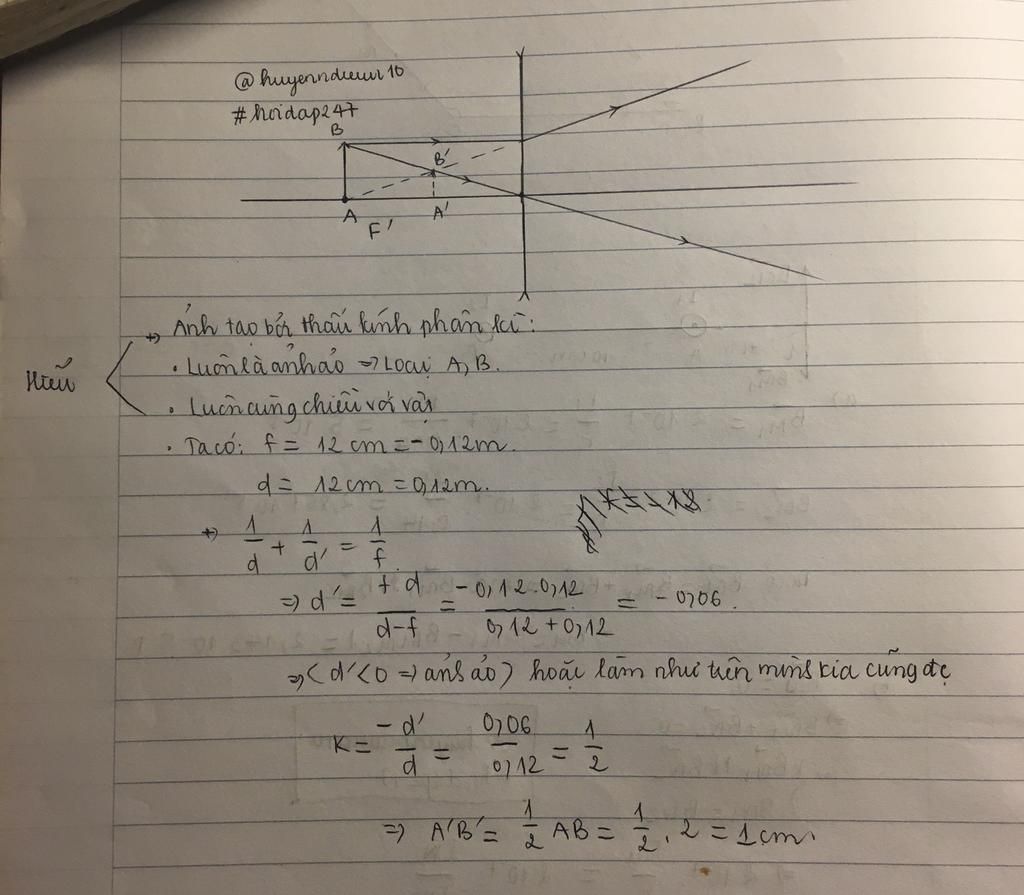 @huyenndieuu10
#hoidap247
B
B'
A
A'
F'
→ Ảnh tạo bởi thấu kính phân kì:
Hiểu
• Luôn là ảnh ảo => Loại A, B.
• Luôn cùng chiều với vật
• Ta có: f = 12 cm = -0,12m.
d = 12cm = 0,12m.
→ 1/d + 1/d' = 1/f.
=> d' = f d/d-f = -0,12.0,12/0,12+0,12 = -0,06.
=> (d'<0 => ảnh ảo) hoặc làm như trên mình kia cũng đc
K = -d'/d = 0,06/0,12 = 1/2
=> A'B' = 1/2 AB = 1/2 . 2 = 1cm.